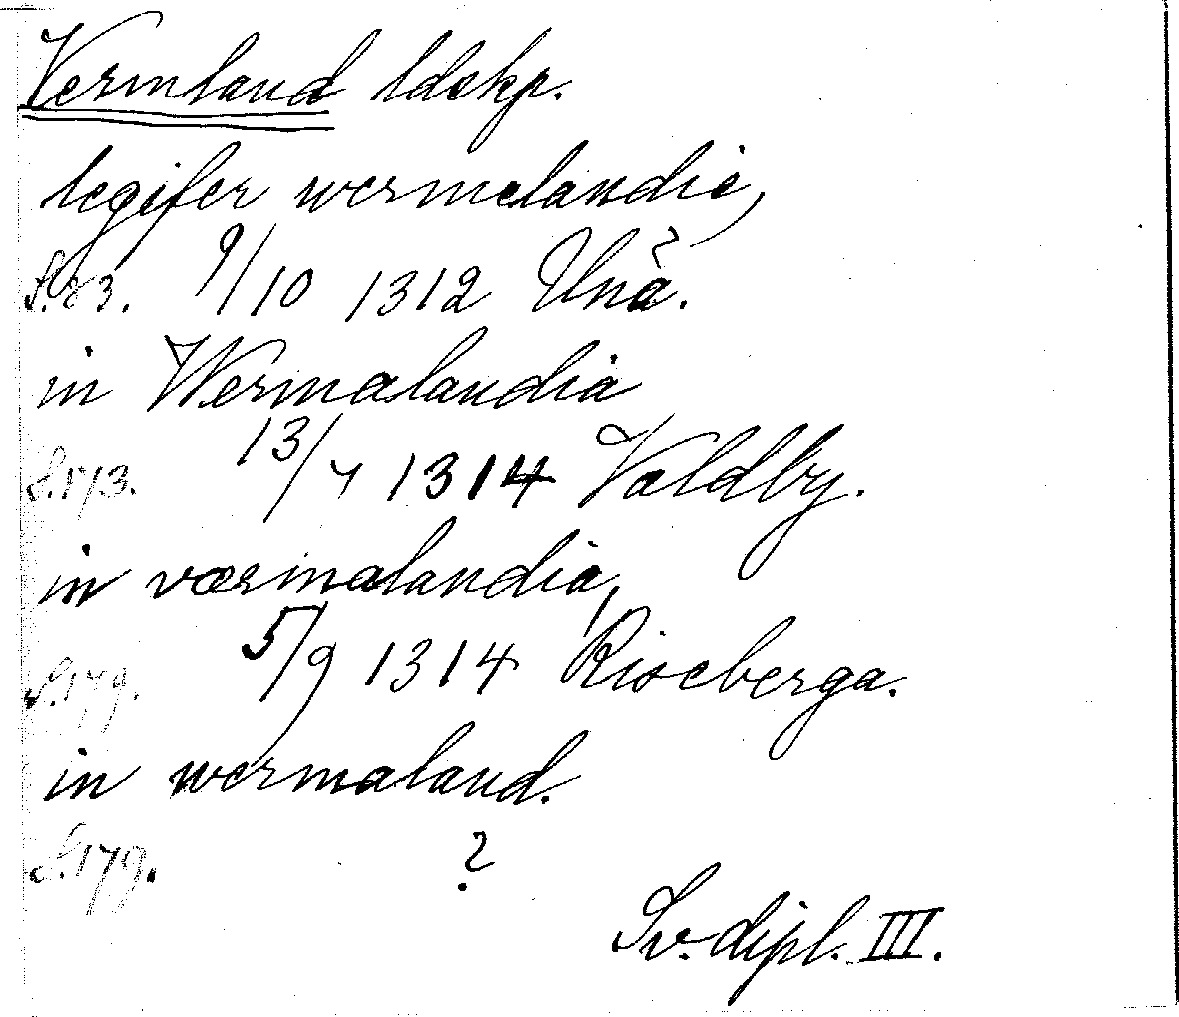 Vermland ldskp.
legifer wermelandie,
S. 83. 9/10 1312 Unå.
in Wermalandia
S. 173. 13/7 1314 Valdby.
in værmalandia,
S. 179. 5/9 1314 Riseberga.
in wermaland.
S. 179. ?
Sv. dipl. III.